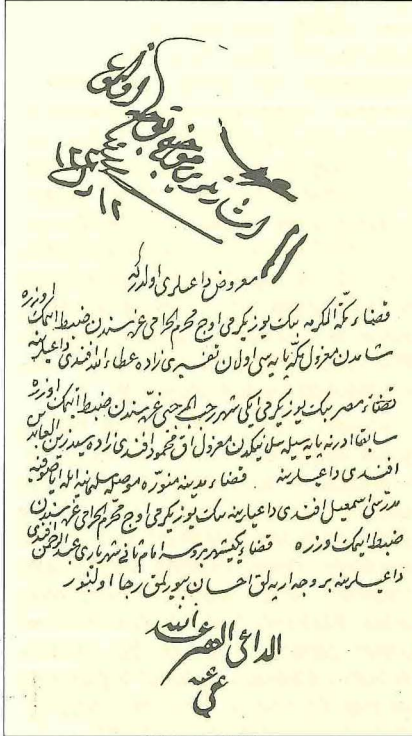 اشارتلری موجبنجه توجیه اولنمق
١٢
معروض داعیلری اولدر که
قضاء مکّة المکرمه بیك یوز یکرمی اوچ محرم الحرامی غره سندن ضبط ایتمك اوزره
شامدن معزول مکّه پایه سی اولان تفسیری زاده عطاء الله افندی داعیلرینه
قضاء مصر بیك یوز یکرمی ایکی شهر رجب المرجبی غرّه سندن ضبط ایتمك اوزره
سابقا ادرنه پایه سیله سلانیکدن معزول اق محمود افندی زاده سید زین العابدین
افندی داعیلرینه قضاء مدینه منوّره موصله سلیمانیه ایله ایاصوفیه
مدرّسی اسمعیل افندی داعیلرینه بیك یوز یکرمی اوچ محرّم الحرامی غره سندن
ضبط ایتمك اوزره قضاء یکیشهر بروسه امام ثانئ شهریاری عبد الرحمن افندی
داعیلرینه بر وجه ارپه لق احسان بیورلمق رجا اولنور
الداعی الفقیر عبد الله
عفی عنه